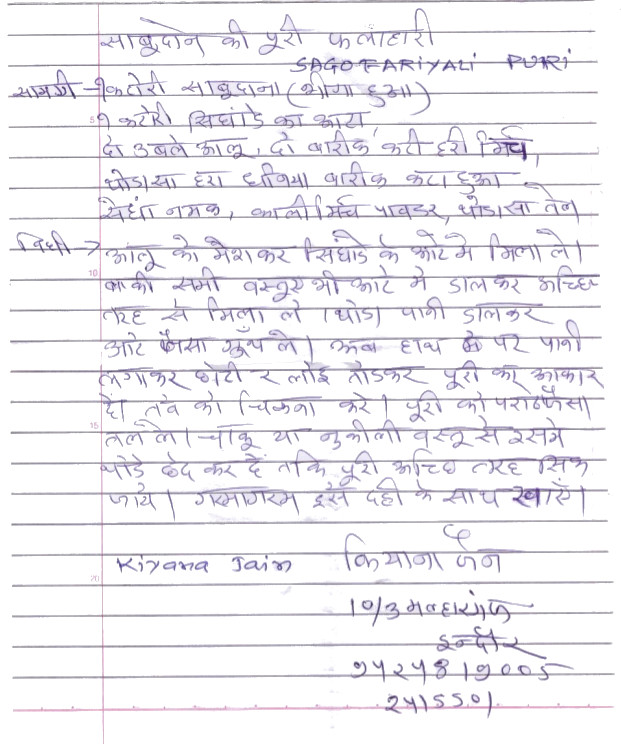 साबूदाने की पूरी फलाहारी
SAGO FARIYALI PURI
सामग्री - १ कटोरी साबुदाना (भीगा हुआ)
१ कटोरी सिघांडे का आटा,
दो उबले आलू, दो बारीक कटी हरी मिर्च,
थोडा सा हरा धनिया बारीक कटा हुआ
सेधां नमक, काली मिर्च पावडर, थोडा सा तेल
विधी → आलू को मेश कर सिंघाडे के आटे मे मिला ले।
बाकी सभी वस्तुए भी आटे मे डालकर अच्छि
तरह से मिला ले। थोडा पानी डालकर
आटे जैसा गूँथ ले। अब हाथ पर पानी
लगाकर छोटी २ लोई तोडकर पूरी का आकार
दे। तवे को चिकना करे। पूरी को पराठे जैसा
तल ले। चाकू या नुकीली वस्तू से इसमे
थोडे छेद कर दें ताकि पूरी अच्छि तरह सिक
जाये। गरमागरम इसे दही के साथ खाएँ।
Kiyana Jain कियाना जैन
10/3 मल्हारगंज
इन्दौर
9424819005
2415501